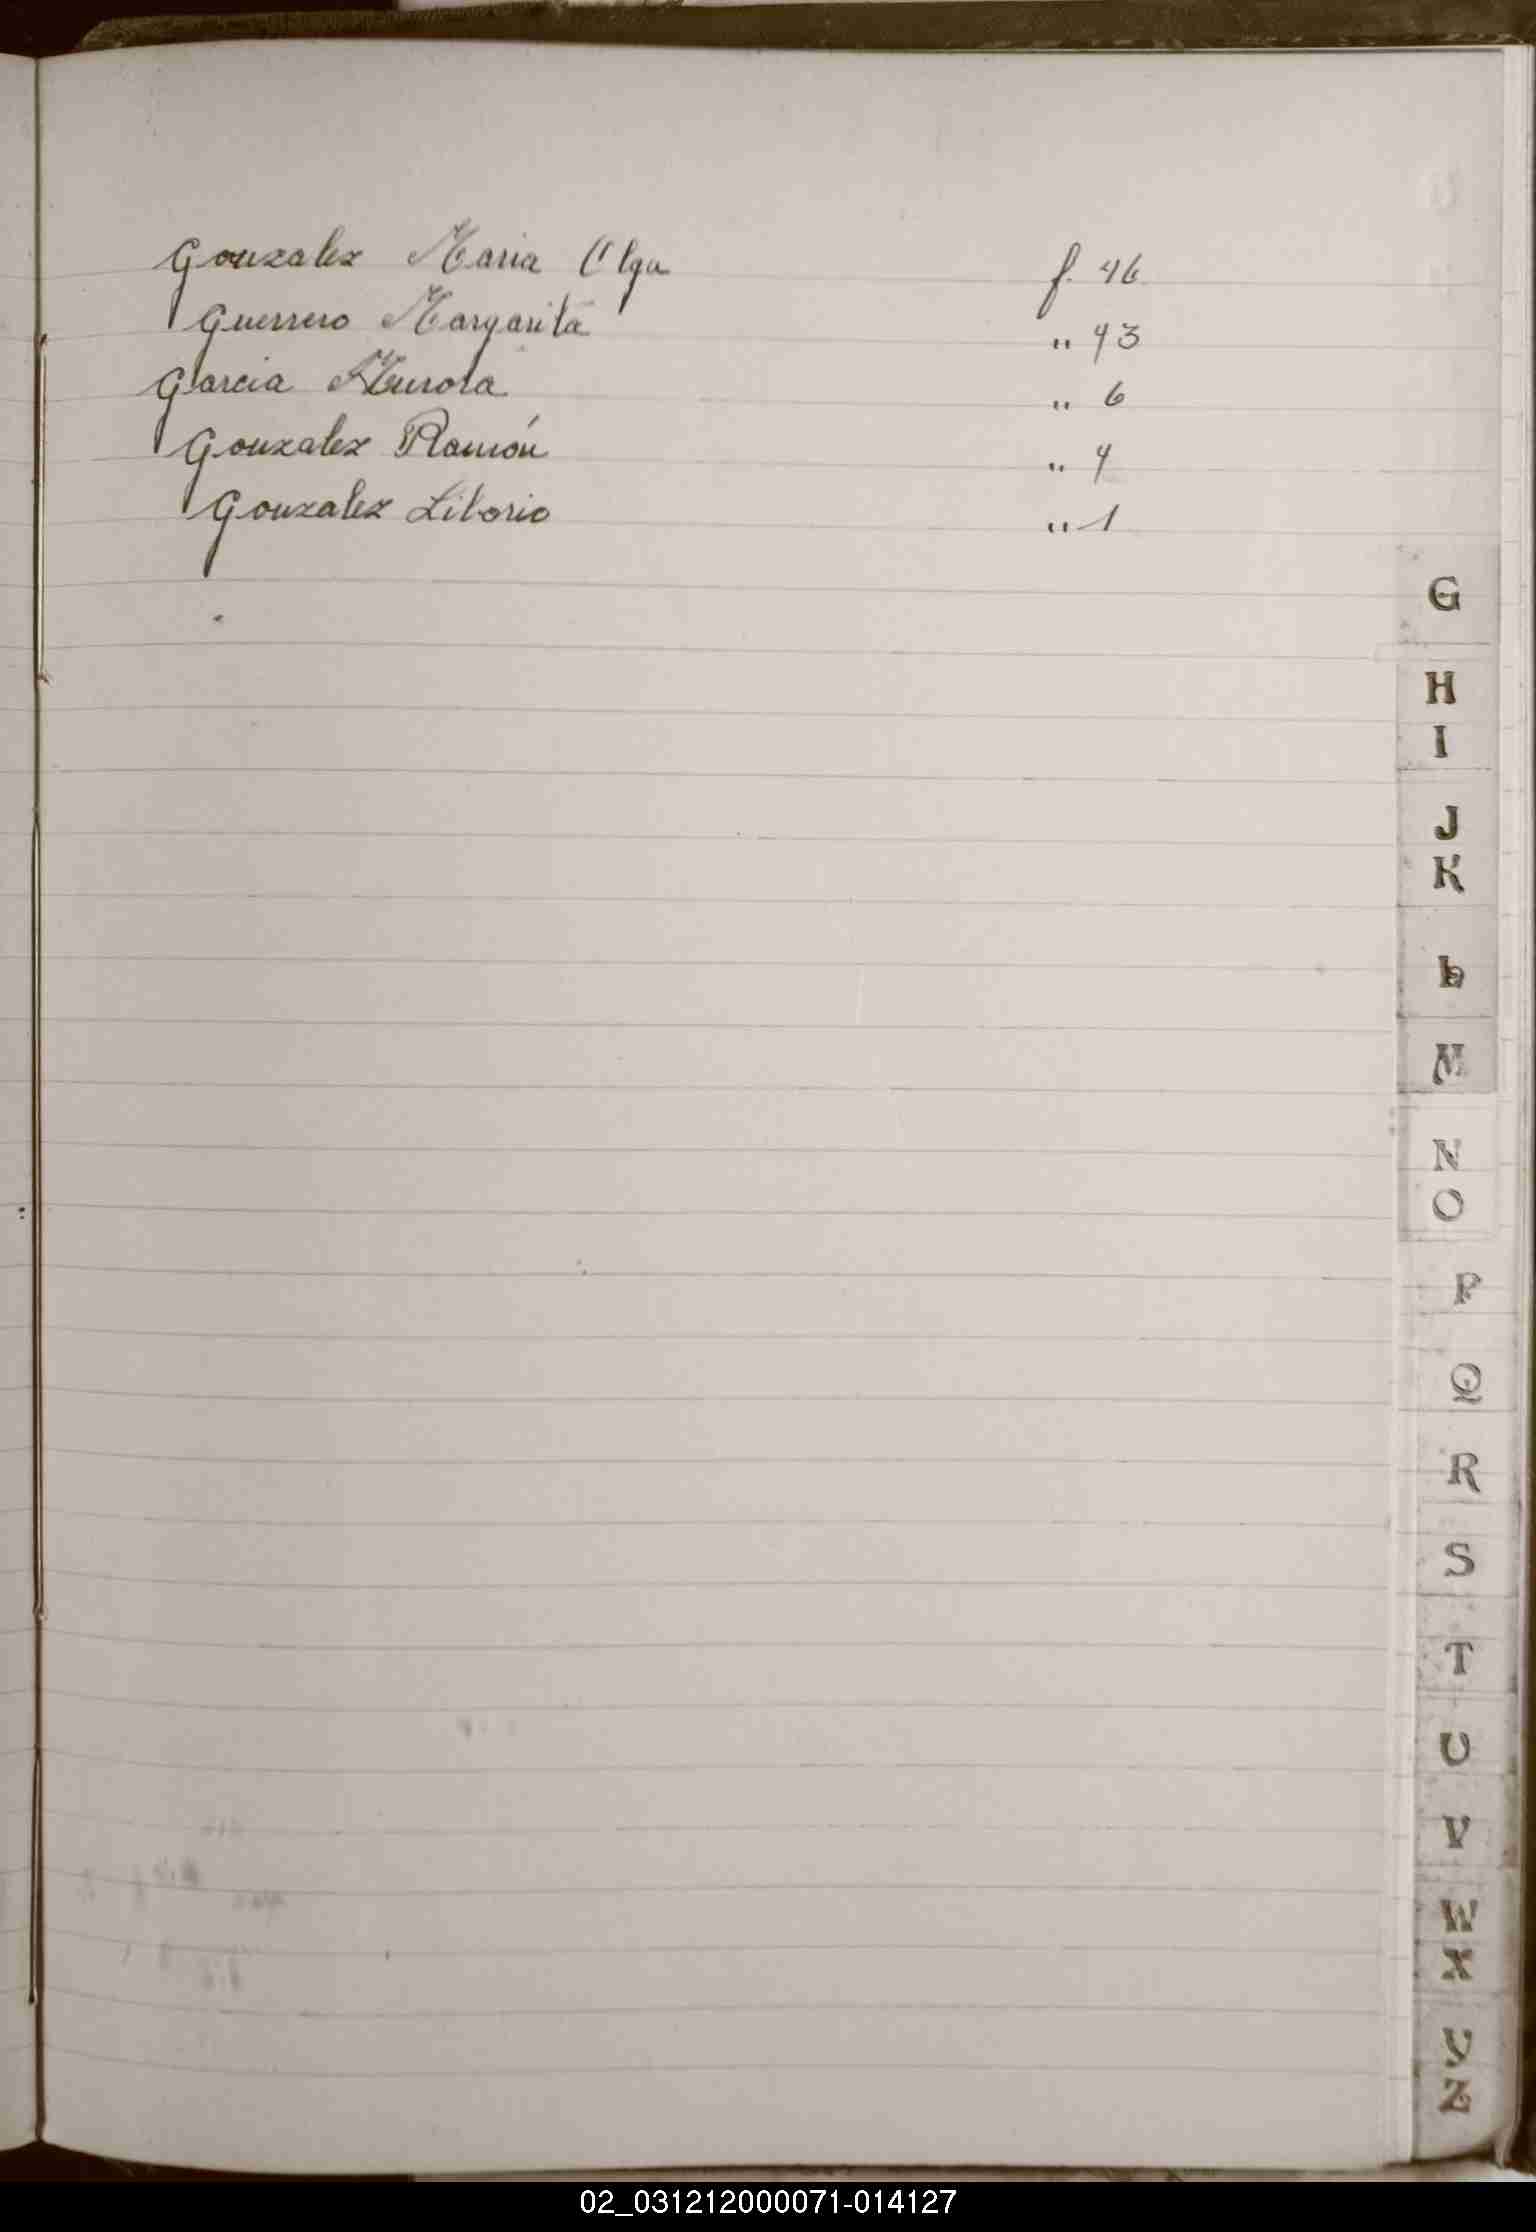 Gonzalez Maria Olga f. 46
Guerrero Margarita " 43
Garcia Aurora " 6
Gonzalez Ramón " 4
Gonzalez Liborio " 1
G
H
I
J
K
L
M
N
O
P
Q
R
S
T
U
V
W
X
Y
Z
02_031212000071-014127